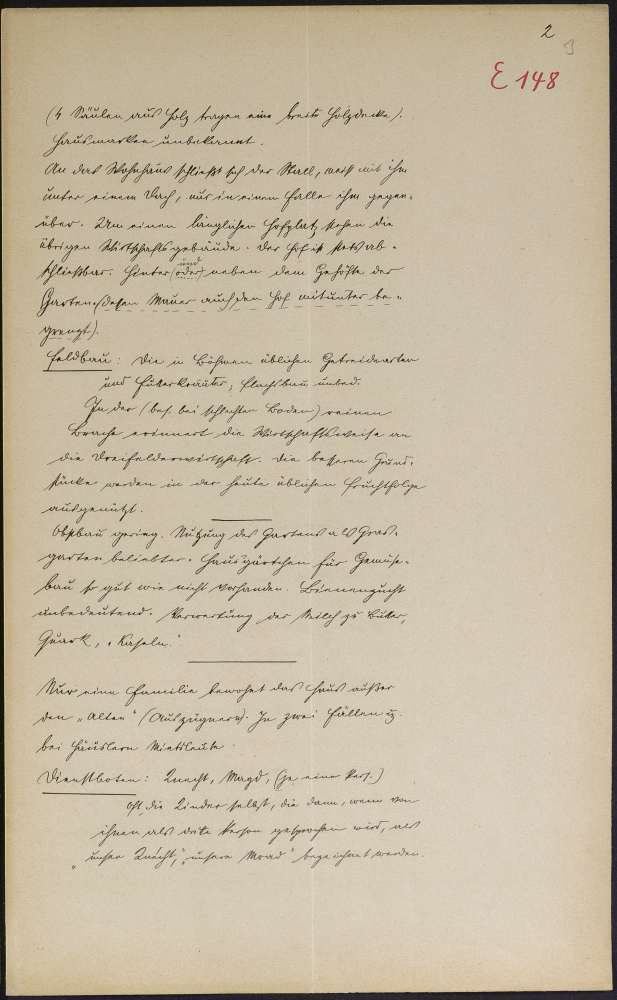 2
3
E 148
(4 Säulen aus Holz tragen eine breite Holzdecke).
Hausmarken unbekannt.
An das Wohnhaus schließt sich der Stall, meist mit ihm
unter einem Dach, nur in einem Falle ihm gegen-
über. Um einen länglichen Hofplatz stehen die
übrigen Wirtschaftsgebäude. Der Hof ist stets ab-
schließbar. Hinter (oder) und neben dem Gehöfte der
Garten (dessen Mauer auch den Hof mitunter be-
grenzt).
Feldbau: Die in Böhmen üblichen Getreidearten
und Futterkräuter; Flachsbau unbed.
In der (bes. bei schlechten Boden) reinen
Brache erinnert die Wirtschaftsweise an
die Dreifelderwirtschaft. Die besseren Grund-
stücke werden in der heute üblichen Fruchtfolge
ausgenützt.
Obstbau gering. Nutzung des Gartens als Gras-
garten beliebter. Hausgärtchen für Gemüse-
bau so gut wie nicht vorhanden. Bienenzucht
unbedeutend. Verwertung der Milch zu Butter,
Quark, „Kaseln."
Nur eine Familie bewohnt das Haus außer
den „Alten" (Auszüglern). In zwei Fällen
bei Häuslern Mietsleute.
Dienstboten: Knecht, Magd, (je eine Pers.)
Oft die Kinder selbst, die dann, wenn von
ihnen als dritte Person gesprochen wird, als
„unser Knecht," „unsere Moad" bezeichnet werden.